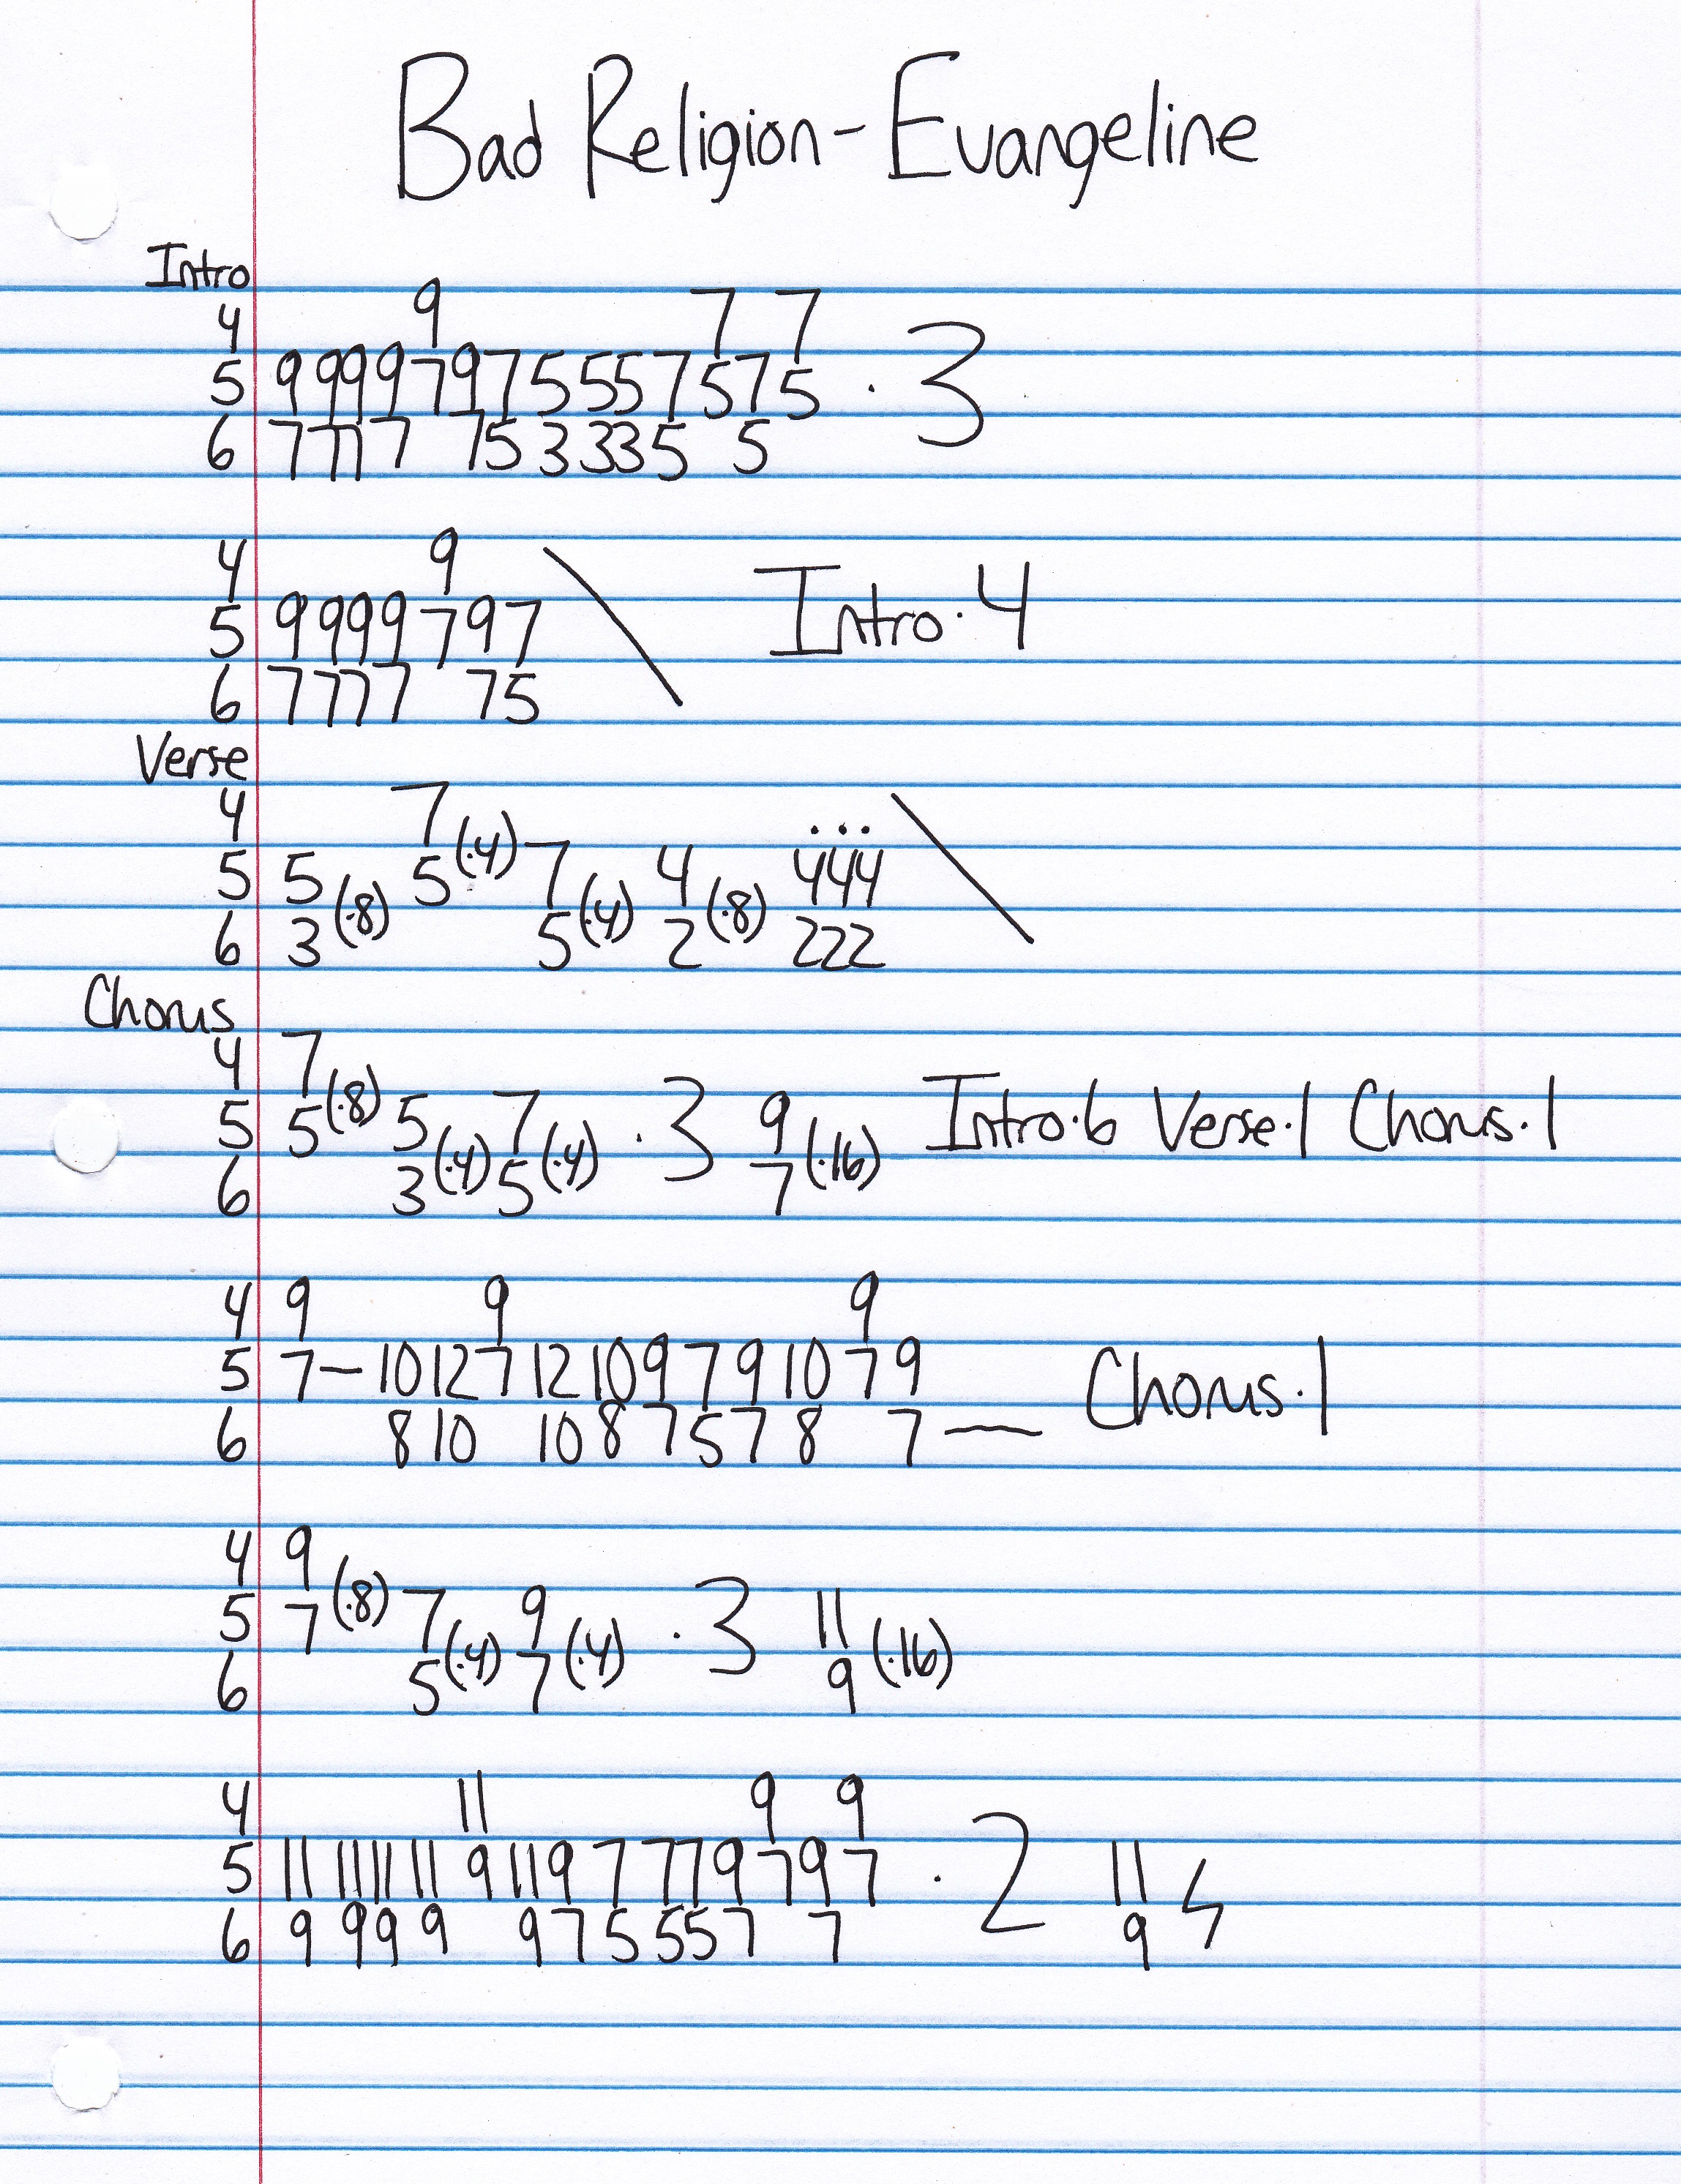 Bad Religion - Evangeline
Intro
4 9 7 7
5 9 9 9 9 7 9 7 5 5 5 7 5 7 5 · 3
6 7 7 7 7 7 5 3 3 3 5 5
4 9
5 9 9 9 9 7 9 7 \ Intro · 4
6 7 7 7 7 7 5
Verse
4 7
5 5 (·8) 5 (·4) 7 (·4) 4 (·8) 4 4 4 \
6 3 5 2 2 2 2
Chorus
4 7
5 5 (·8) 5 (·4) 7 (·4) · 3 9 (·16) Intro · 6 Verse · 1 Chorus · 1
6 3 5 7
4 9 9 9
5 7 – 10 12 7 12 10 9 7 9 10 7 9 Chorus · 1
6 8 10 10 8 7 5 7 8 7 —
4 9
5 7 (·8) 7 (·4) 9 (·4) · 3 11 (·16)
6 5 7 9
4 11 9 9
5 11 11 11 11 9 11 9 7 7 7 9 7 9 7 · 2 11
6 9 9 9 9 9 7 5 5 5 7 7 9